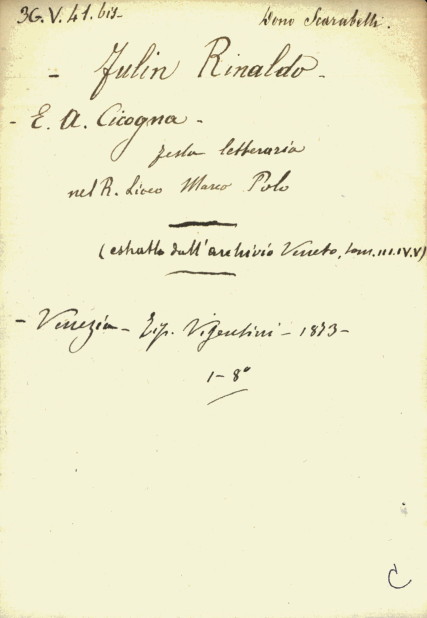 36.V.41.bis
Dono Scarabelli.
- Fulin Rinaldo -
- E. A. Cicogna -
festa letteraria
nel R. Liceo Marco Polo
(estratto dall'archivio Veneto, tom. III. IV. V)
- Venezia - Tip. Visentini - 1873 -
1 - 8°
C